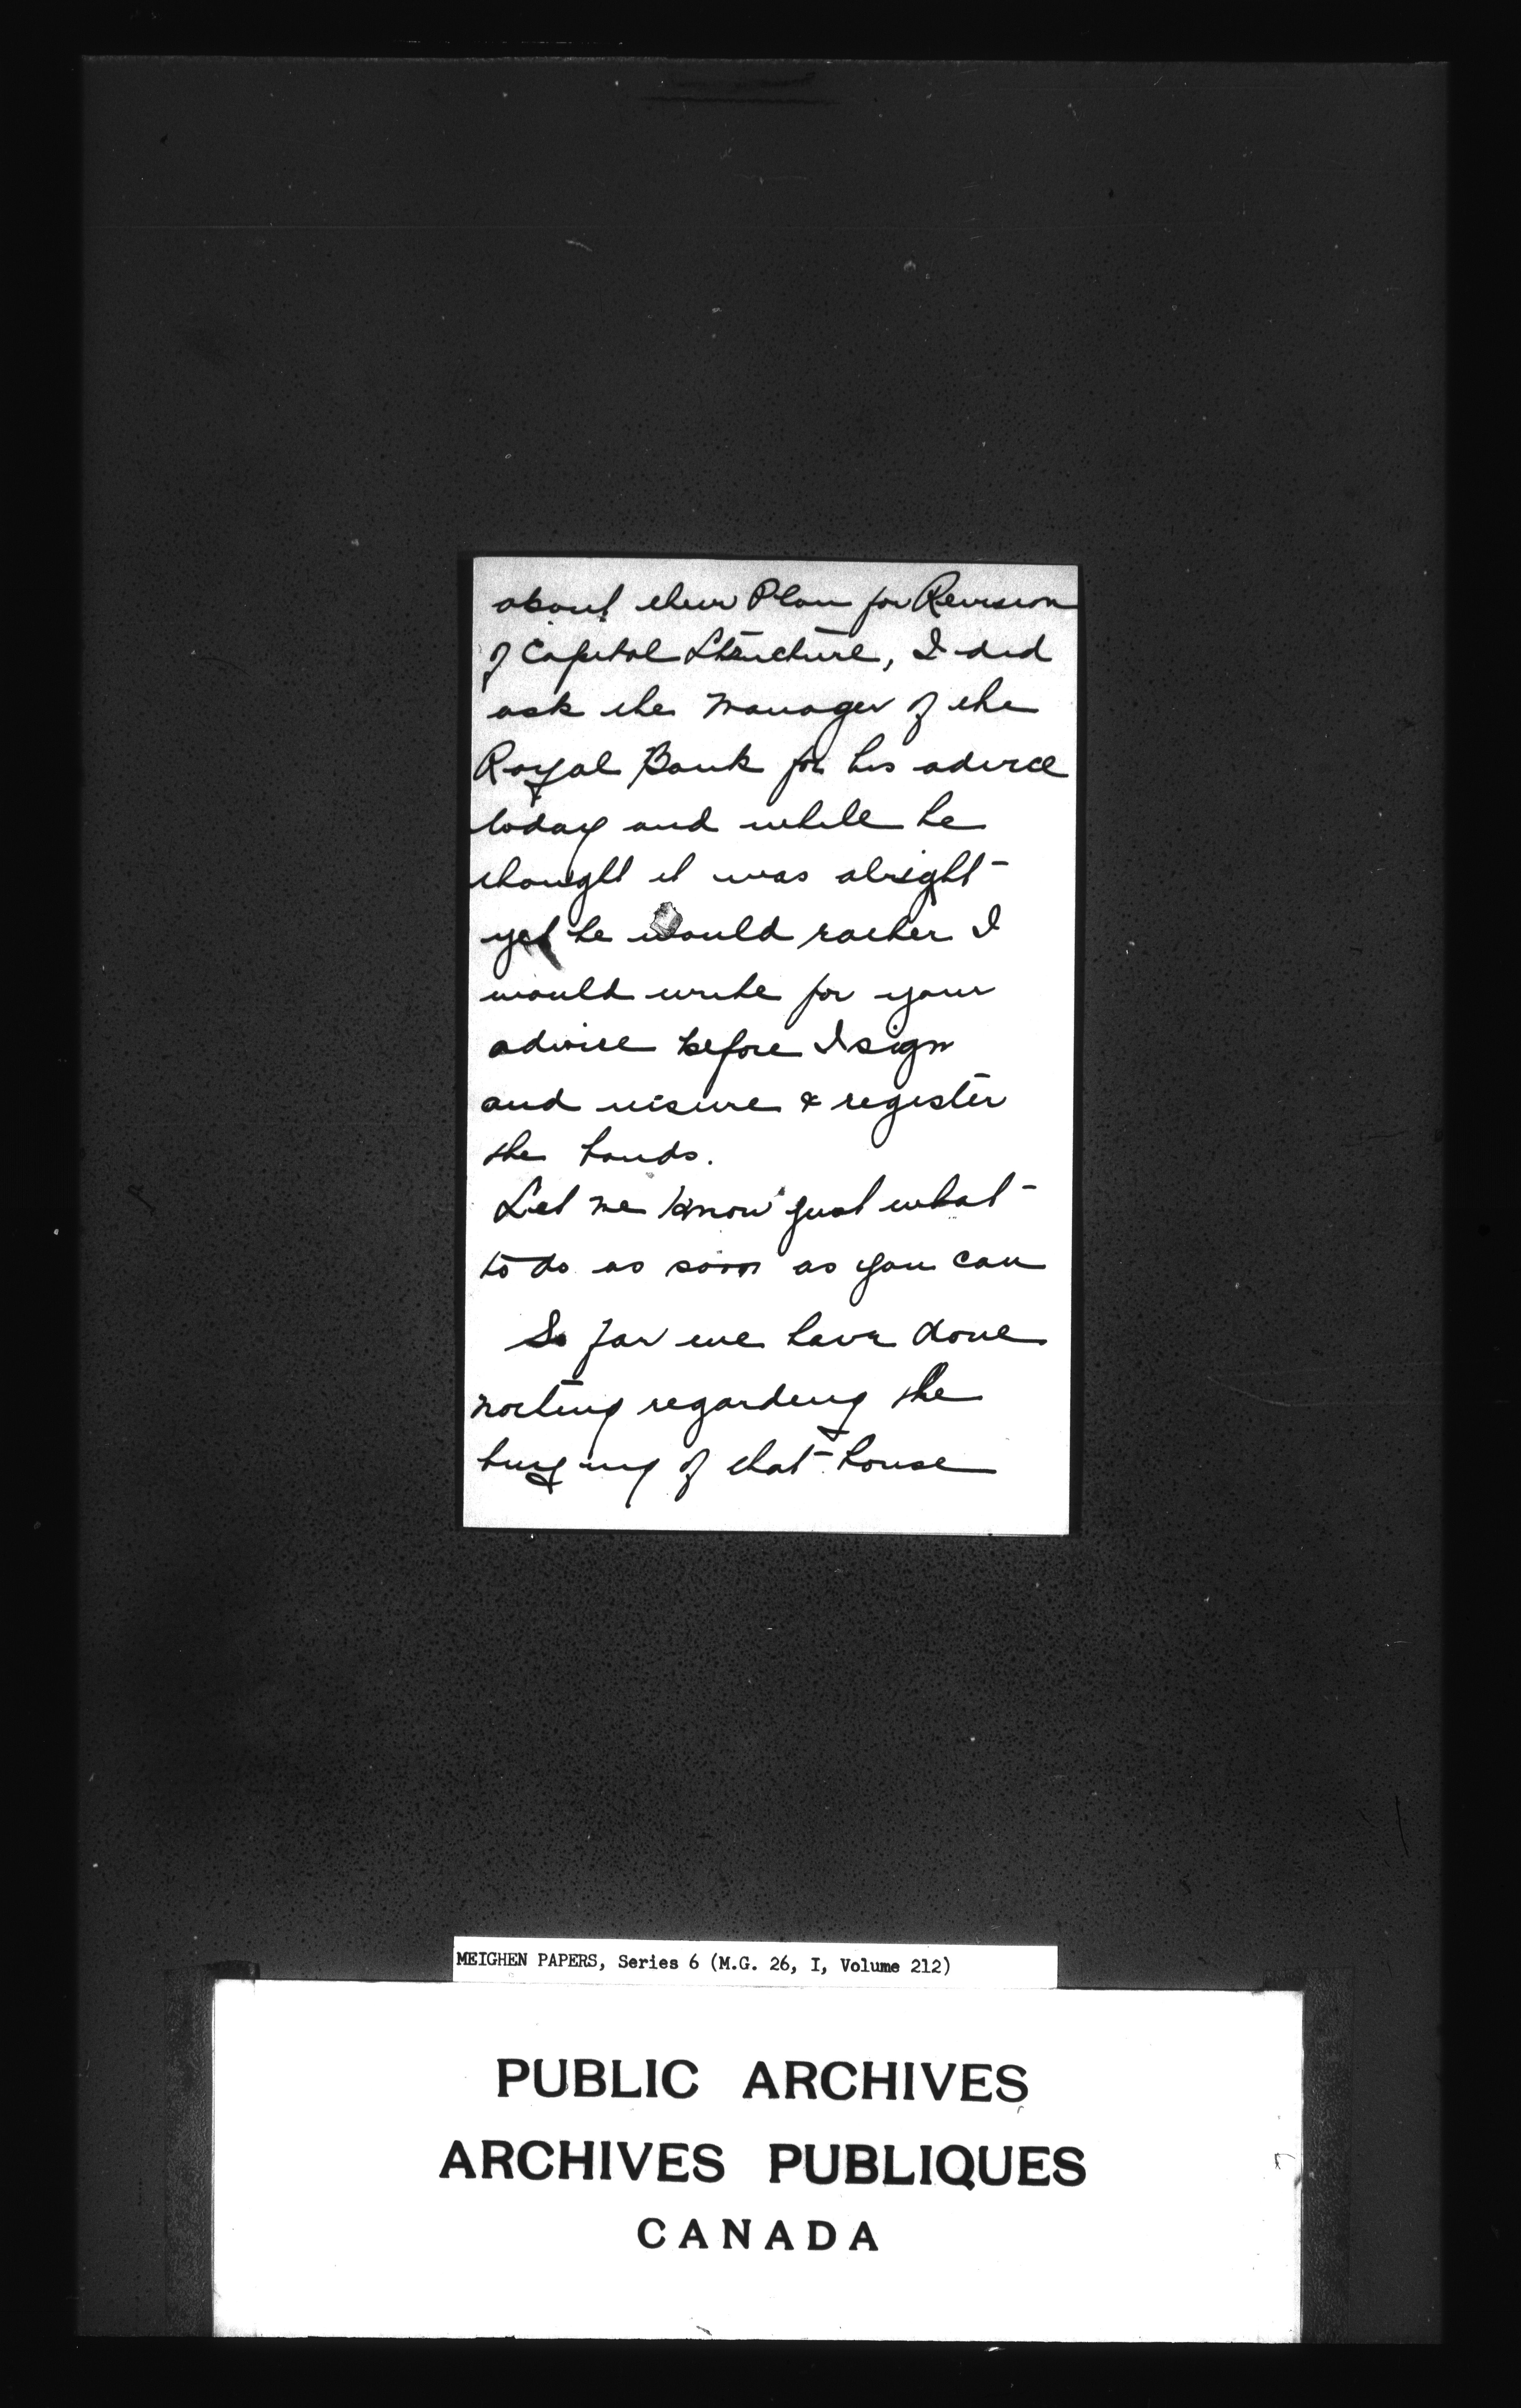 about their Plan for Revision
of Capital Structure, I did
ask the Manager of the
Royal Bank for his advice
today and while he
thought it was alright
yet he would rather I
would write for your
advice before I sign
and insure & register
the bonds.
Let me know just what
to do as soon as you can
So far we have done
nothing regarding the
buying of that house
MEIGHEN PAPERS, Series 6 (M.G. 26, I, Volume 212)
PUBLIC ARCHIVES
ARCHIVES PUBLIQUES
CANADA